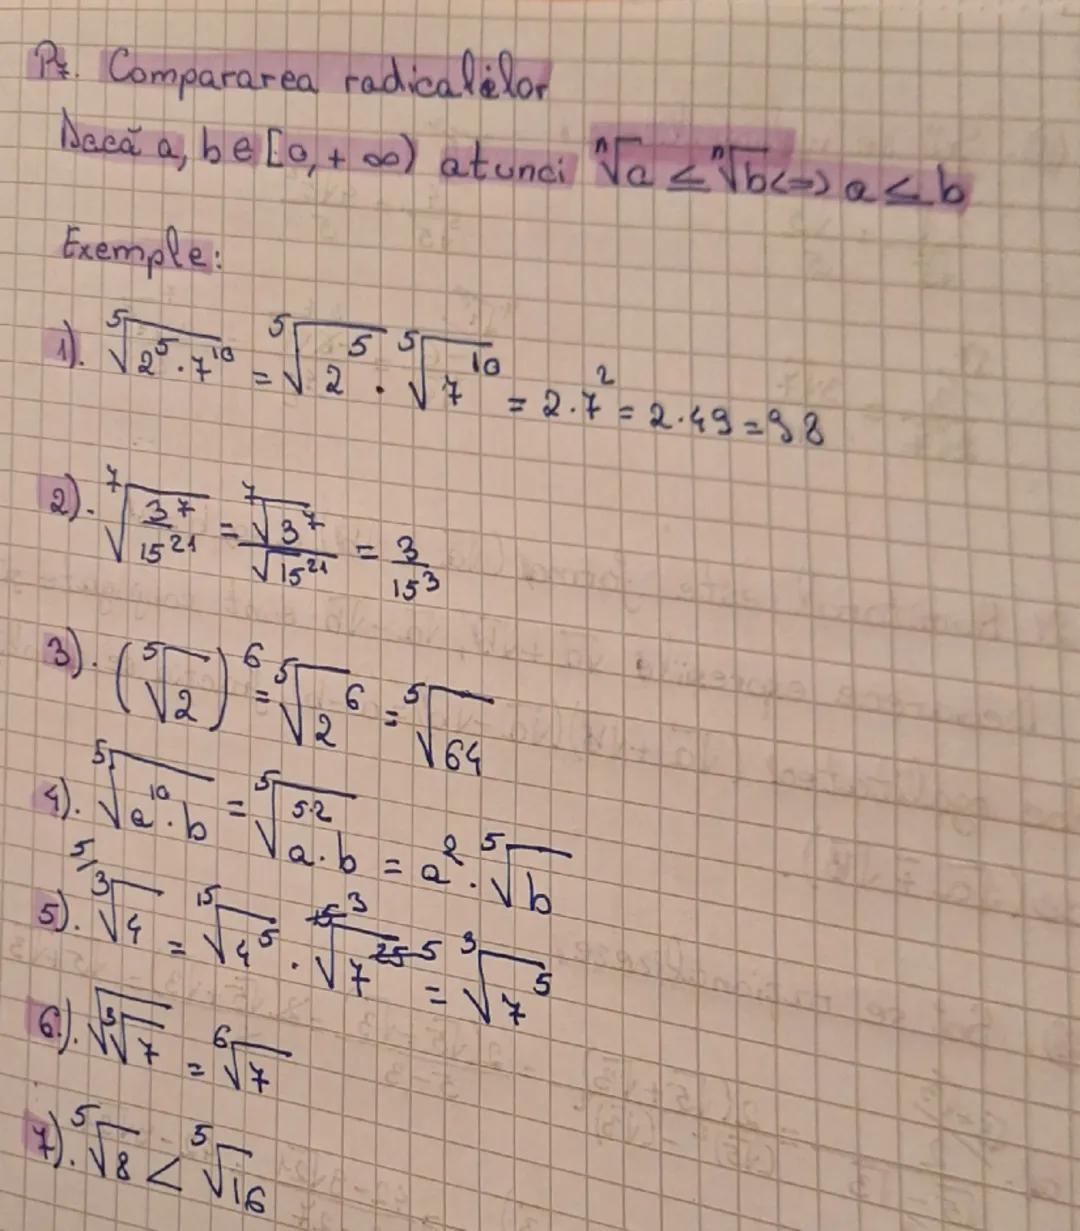 P7. Compararea radicalilor
Dacă a, b ∈ [0, + ∞) atunci ⁿ√a ≤ ⁿ√b <=> a ≤ b
Exemple:
1). ⁵√(2⁵ · 7¹⁰) = ⁵√2⁵ · ⁵√7¹⁰ = 2 · 7² = 2 · 49 = 98
2). ⁷√(3⁷/15²¹) = ⁷√3⁷/√15²¹ = 3/15³
3). (⁵√2)⁶ = ⁵√2⁶ = ⁵√64
4). ⁵√(a¹⁰ · b) = ⁵√(a⁵·² · b) = a² · ⁵√b
5). ⁵⁄ ³√4 = ¹⁵√4⁵ · ¹⁵ ³√7²⁵ ⁵ = ³√7⁵
6). √(³√7) = ⁶√7
7). ⁵√8 < ⁵√16